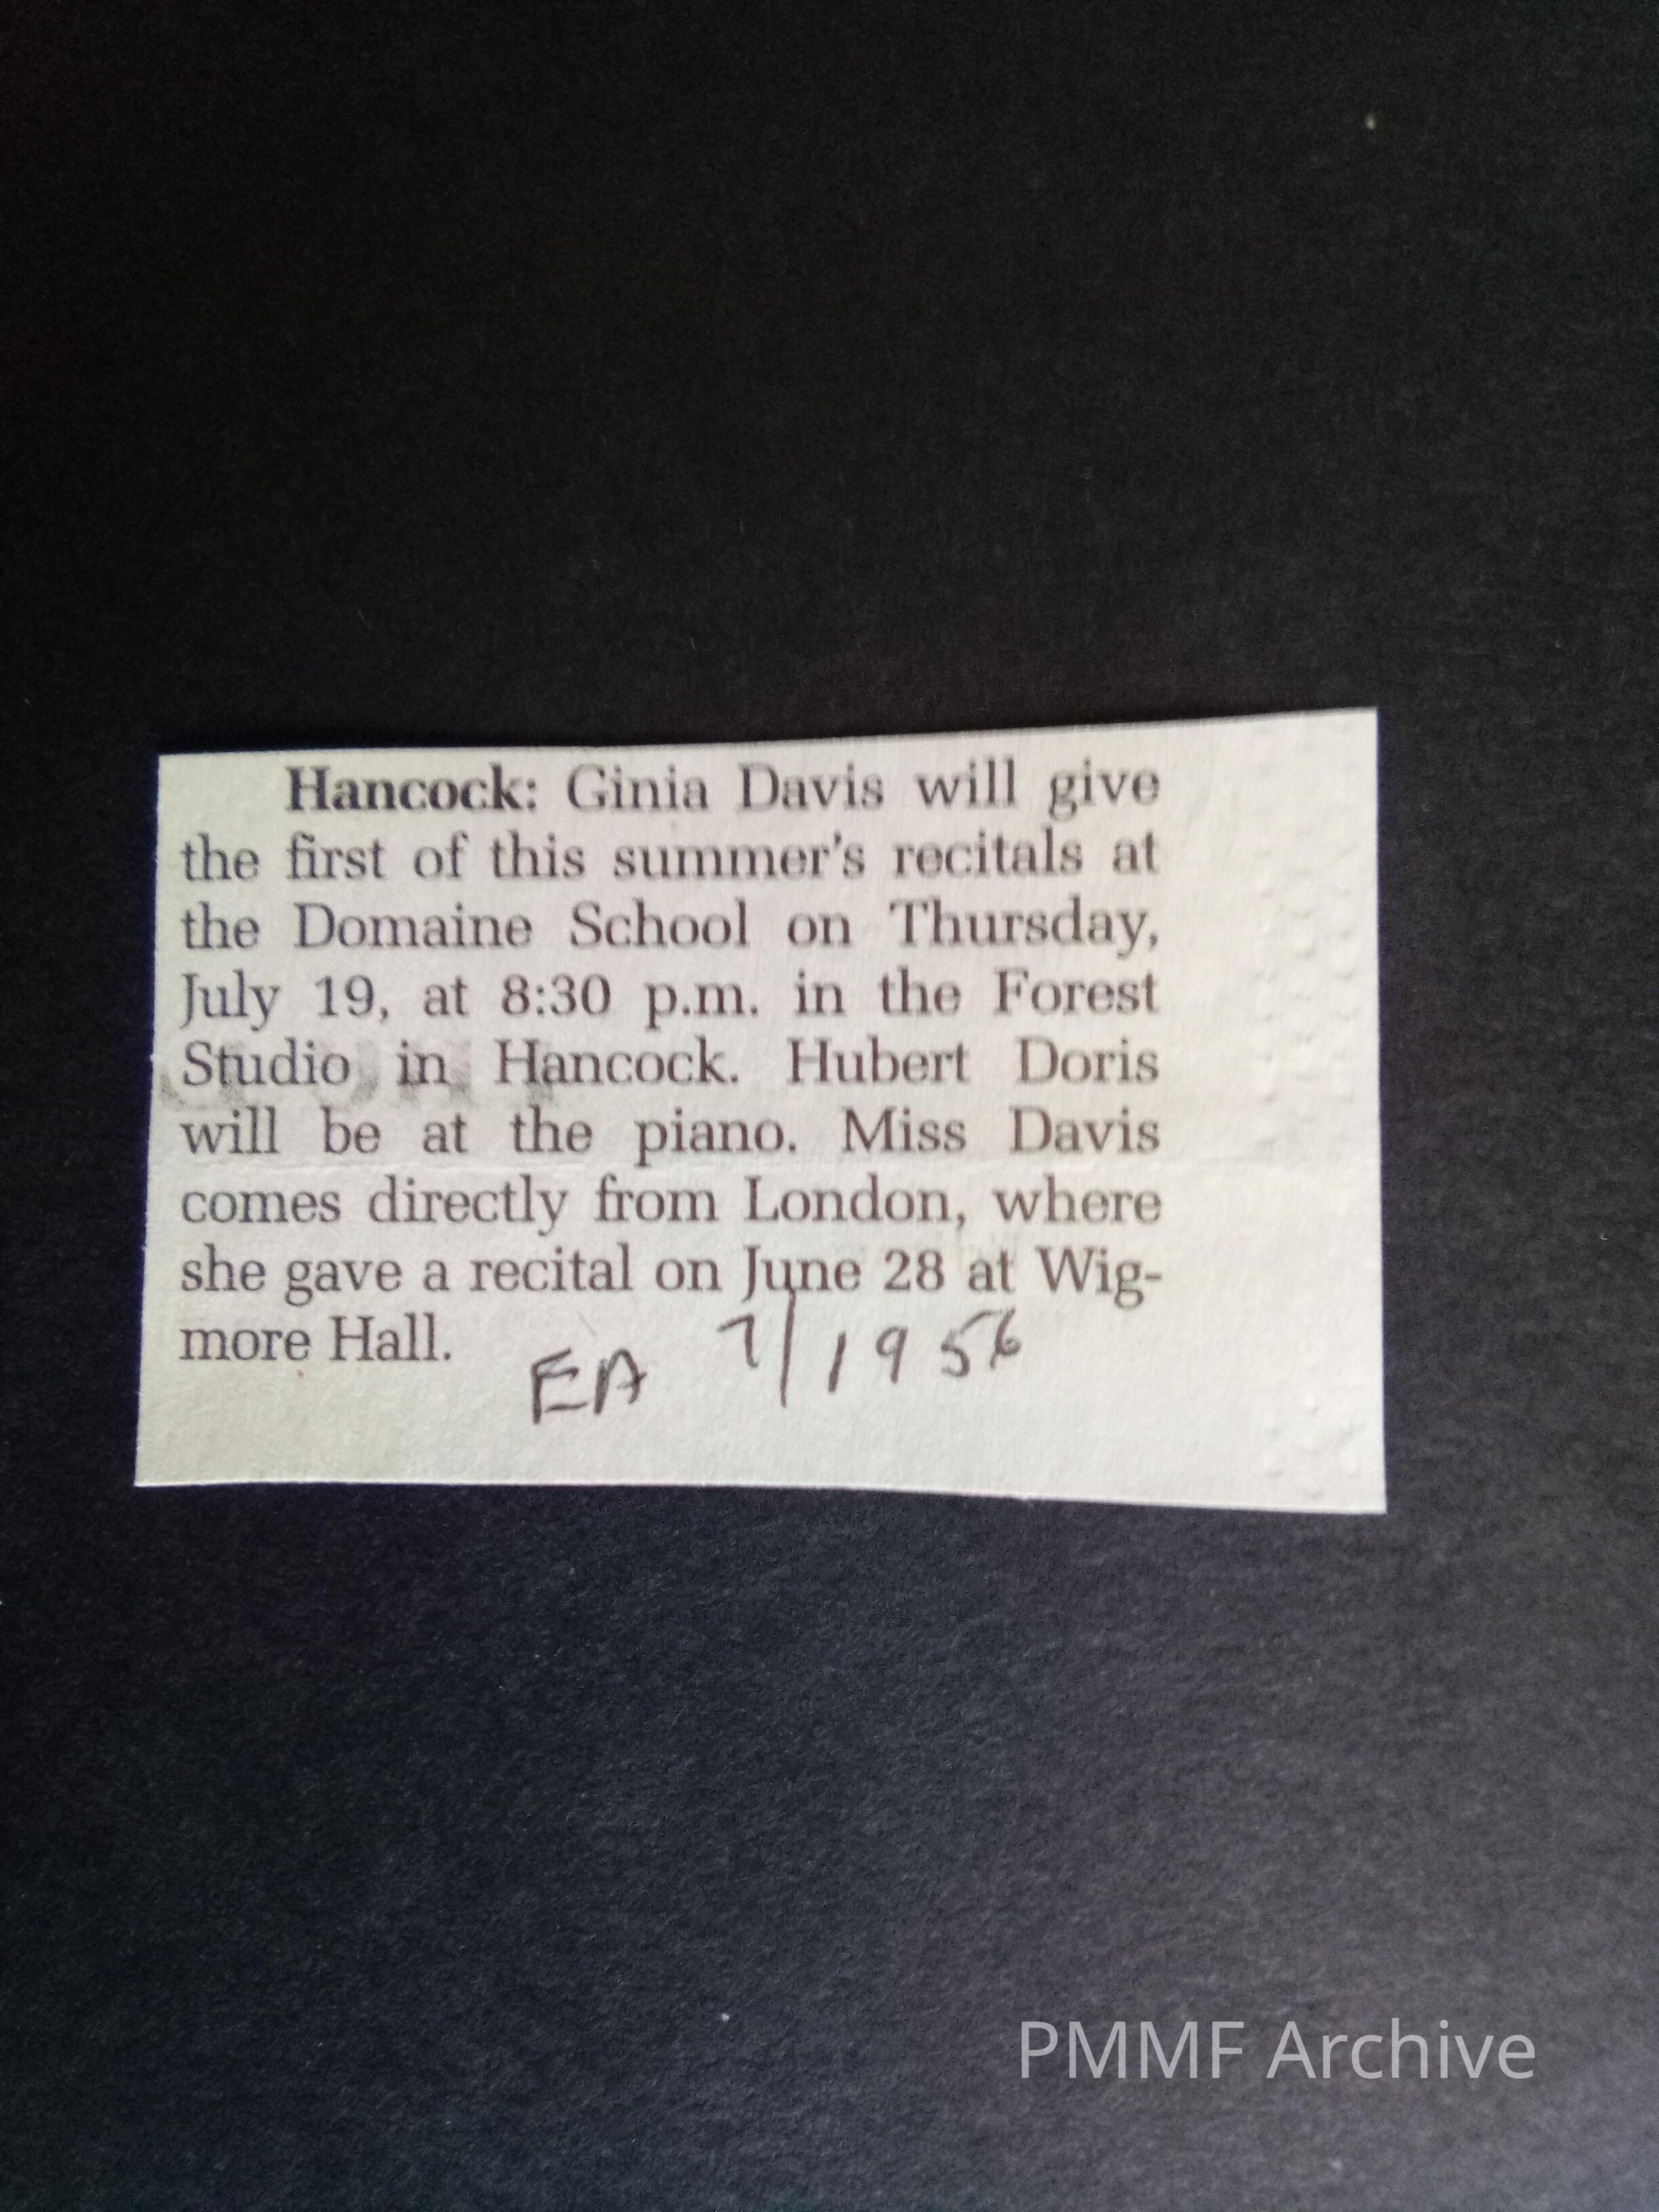 Hancock: Ginia Davis will give
the first of this summer's recitals at
the Domaine School on Thursday,
July 19, at 8:30 p.m. in the Forest
Studio in Hancock. Hubert Doris
will be at the piano. Miss Davis
comes directly from London, where
she gave a recital on June 28 at Wig-
more Hall.
EA 7/1956
PMMF Archive